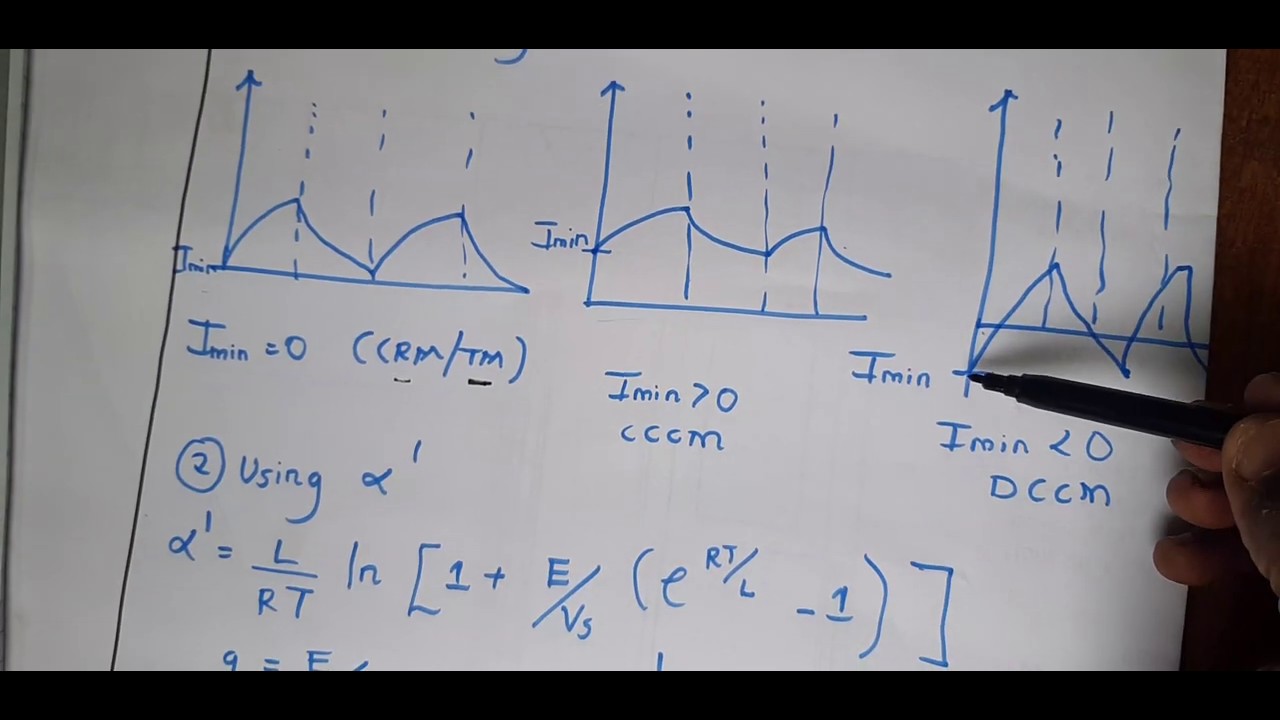 Imin
Imin = 0 (CRM/TM)
Imin
Imin > 0
CCCM
Imin
Imin < 0
DCCM
② Using α'
α' = L/RT ln [1 + E/Vs (e^RT/L - 1)]